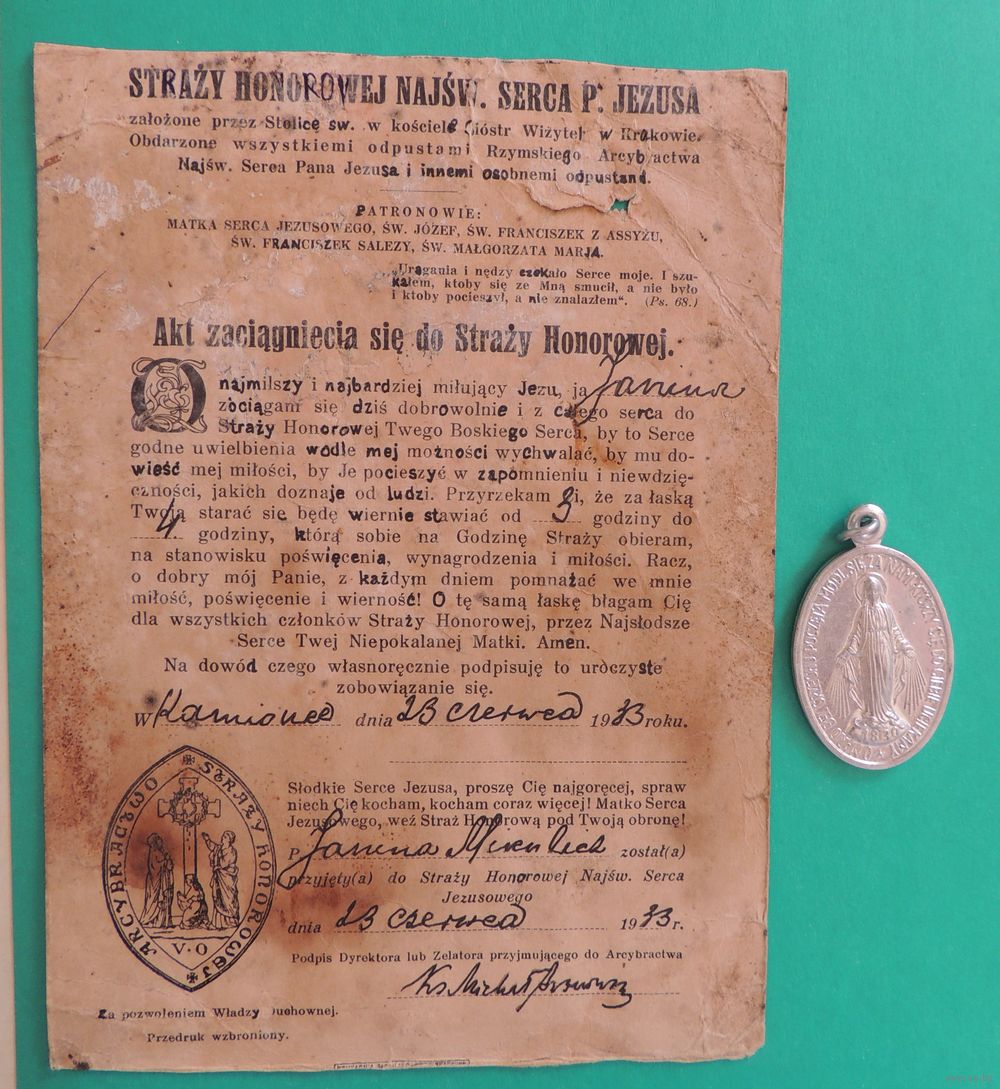 STRAŻY HONOROWEJ NAJŚW. SERCA P. JEZUSA
założone przez Stolicę św. w kościele Sióstr Wizytek w Krakowie.
Obdarzone wszystkiemi odpustami Rzymskiego Arcybractwa
Najśw. Serca Pana Jezusa i innemi osobnemi odpustami.
PATRONOWIE:
MATKA SERCA JEZUSOWEGO, ŚW. JÓZEF, ŚW. FRANCISZEK Z ASSYŻU,
ŚW. FRANCISZEK SALEZY, ŚW. MAŁGORZATA MARJA.
„Urągania i nędzy czekało Serce moje. I szu-
kałem, ktoby się ze Mną smucił, a nie było
i ktoby pocieszył, a nie znalazłem“. (Ps. 68.)
Akt zaciągnięcia się do Straży Honorowej.
O najmilszy i najbardziej miłujący Jezu, ja Janina
zaciągam się dziś dobrowolnie i z całego serca do
Straży Honorowej Twego Boskiego Serca, by to Serce
godne uwielbienia wódle mej możności wychwalać, by mu do-
wieść mej miłości, by Je pocieszyć w zapomnieniu i niewdzię-
czności, jakich doznaje od ludzi. Przyrzekam Ci, że za łaską
Twoją starać się będę wiernie stawiać od 3 godziny do
4 godziny, którą sobie na Godzinę Straży obieram,
na stanowisku poświęcenia, wynagrodzenia i miłości. Racz,
o dobry mój Panie, z każdym dniem pomnażać we mnie
miłość, poświęcenie i wierność! O tę samą łaskę błagam Cię
dla wszystkich członków Straży Honorowej, przez Najsłodsze
Serce Twej Niepokalanej Matki. Amen.
Na dowód czego własnoręcznie podpisuję to uroczyste
zobowiązanie się.
W Kamionce dnia 23 czerwca 1933 roku.
Słodkie Serce Jezusa, proszę Cię najgoręcej, spraw
niech Cię kocham, kocham coraz więcej! Matko Serca
Jezusowego, weź Straż Honorową pod Twoją obronę!
P. Janina został(a)
przyjęty(a) do Straży Honorowej Najśw. Serca
Jezusowego
dnia 23 czerwca 1933 r.
Podpis Dyrektora lub Zelatora przyjmującego do Arcybractwa
Ks. Michał
ARCYBRACTWO STRAŻY HONOROWEJ
V. O
Za pozwoleniem Władzy Duchownej.
Przedruk wzbroniony.
1830